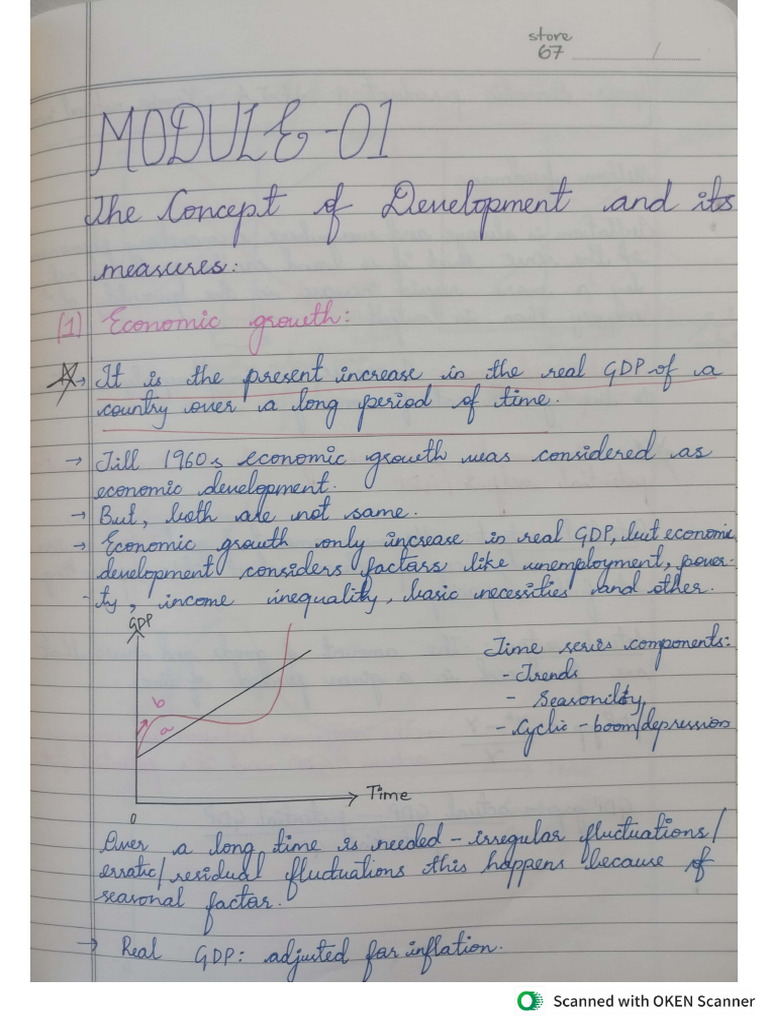 store
67 ___/___
MODULE-01
The Concept of Development and its
measures:
(1) Economic growth:
→ It is the present increase in the real GDP of a
country over a long period of time.
→ Till 1960s economic growth was considered as
economic development.
→ But, both are not same.
→ Economic growth only increase in real GDP, but economic
development considers factors like unemployment, pover-
- ty, income inequality, basic necessities and other.
GDP
b
a
0
Time
Time series components:
- Trends
- Seasonility
- Cyclic - boom/depression
Over a long time is needed - irregular fluctuations/
erratic/residual fluctuations this happens because of
seasonal factor.
→ Real GDP: adjusted for inflation.
Scanned with OKEN Scanner